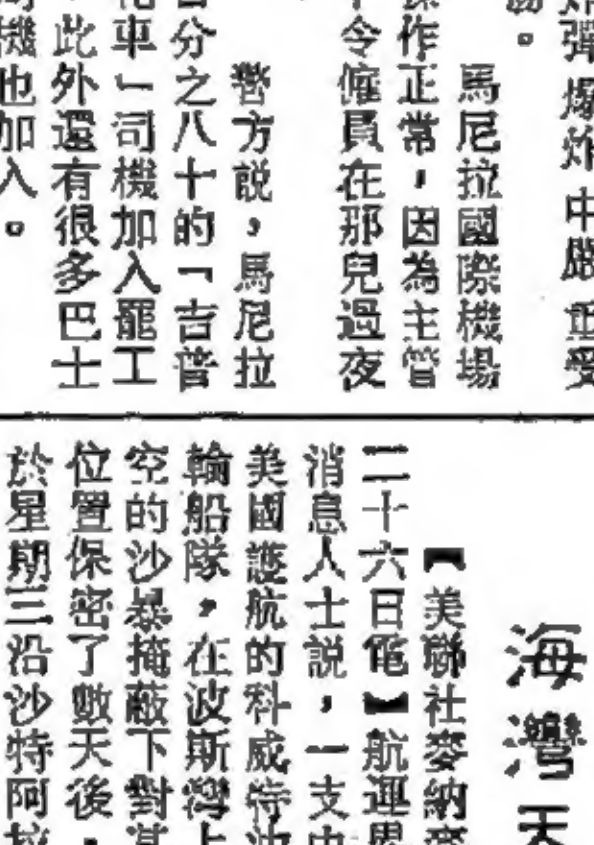 炸彈爆炸中嚴重受
馬尼拉國際機場
操作正常，因為主管
令僱員在那兒過夜
警方説，馬尼拉
百分之八十的「吉普
車」司機加入罷工
此外還有很多巴士
機也加入。
海灣天
【美聯社麥納麥
二十六日電】航運界
消息人士説，一支由
美國護航的科威特油
輪船隊，在波斯灣上
空的沙暴掩蔽下對其
位置保密了數天後，
於星期三沿沙特阿拉